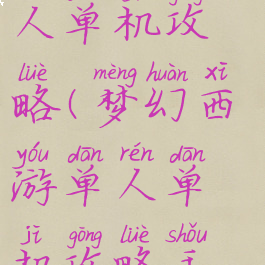 人单机攻
lüè mèng huàn xī
略(梦幻西
yóu dān rén dān
游单人单
jī gōng lüè shǒu
机攻略手